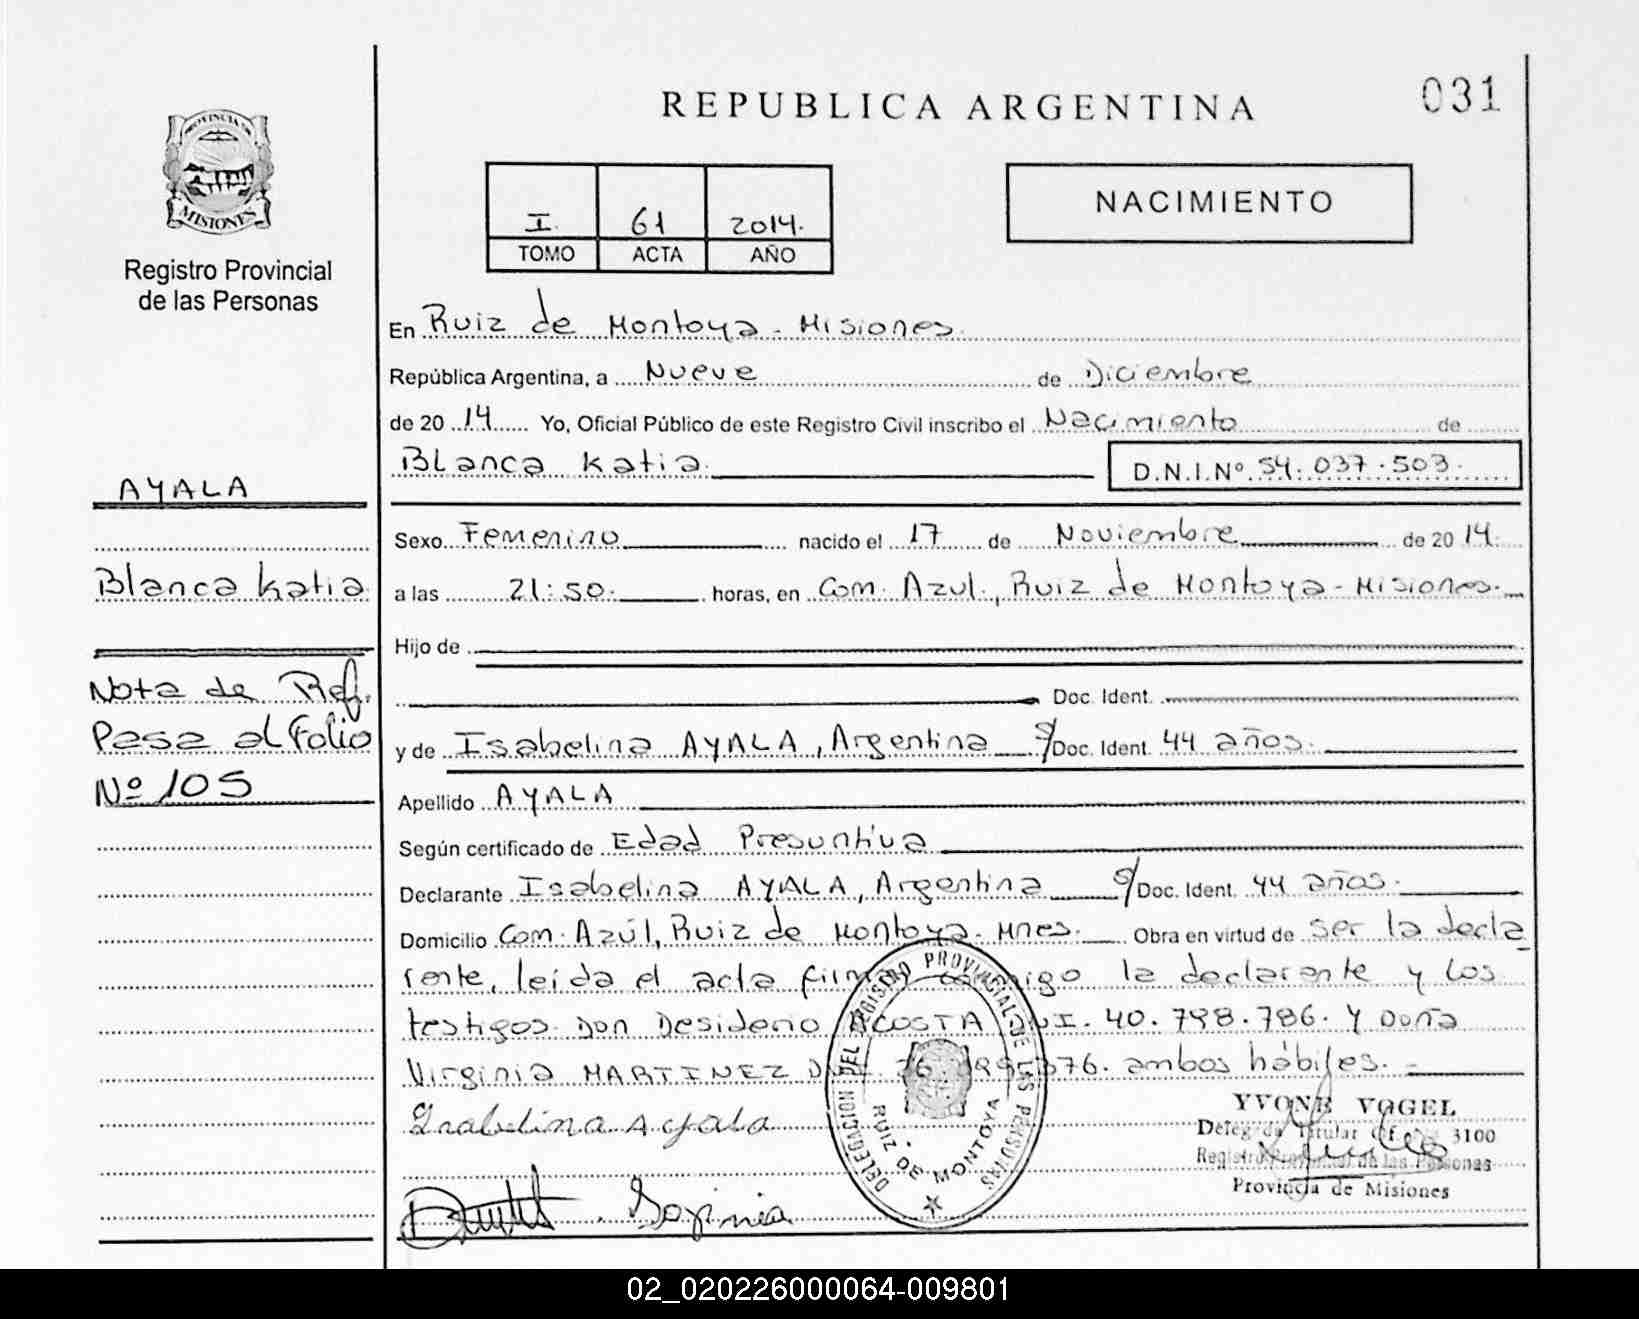 REPUBLICA ARGENTINA
031
PROVINCIA DE
MISIONES
Registro Provincial
de las Personas
NACIMIENTO
I 61 2014.
TOMO ACTA AÑO
En Ruiz de Montoya - Misiones.
República Argentina, a Nueve de Diciembre
de 2014 Yo, Oficial Público de este Registro Civil inscribo el Nacimiento de
Blanca Katia.
D.N.I.Nº 54.037.503.
AYALA
Blanca Katia
Nota de Ref.
Pasa al Folio
Nº 105
Sexo Femenino nacido el 17 de Noviembre de 2014.
a las 21:50. horas, en Com. Azul., Ruiz de Montoya - Misiones.
Hijo de
Doc. Ident.
y de Isabelina AYALA, Argentina S/Doc. Ident. 44 años.
Apellido AYALA
Según certificado de Edad Presuntiva
Declarante Isabelina AYALA, Argentina S/Doc. Ident. 44 años.
Domicilio Com. Azúl, Ruiz de Montoya. Mnes. Obra en virtud de ser la decla
rante, leída el acta la declarante y los
testigos Don Desiderio ACOSTA DNI. 40.798.786. Y Doña
Virginia MARTINEZ ambos hábiles.
Isabelina Ayala
DELEGACION DEL REGISTRO PROVINCIAL DE LAS PERSONAS
RUIZ DE MONTOYA
YVONE VOGEL
Delegada Titular 3100
Registro Provincial de las Personas
Provincia de Misiones
02_020226000064-009801